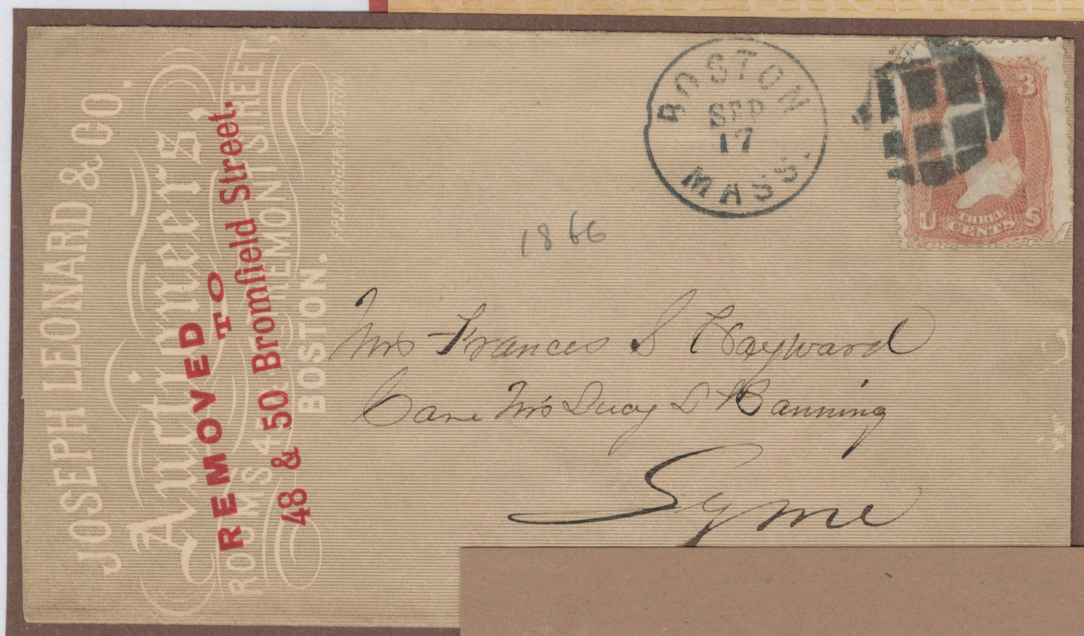 JOSEPH LEONARD & CO.
Auctioneers,
ROOMS 4
TREMONT STREET,
BOSTON.
REMOVED
TO
48 & 50 Bromfield Street.
BOSTON
SEP
17
MASS.
3
U S
THREE
CENTS
1866
Mrs Frances S Hayward
Care Mrs Lucy L Banning
Lyme